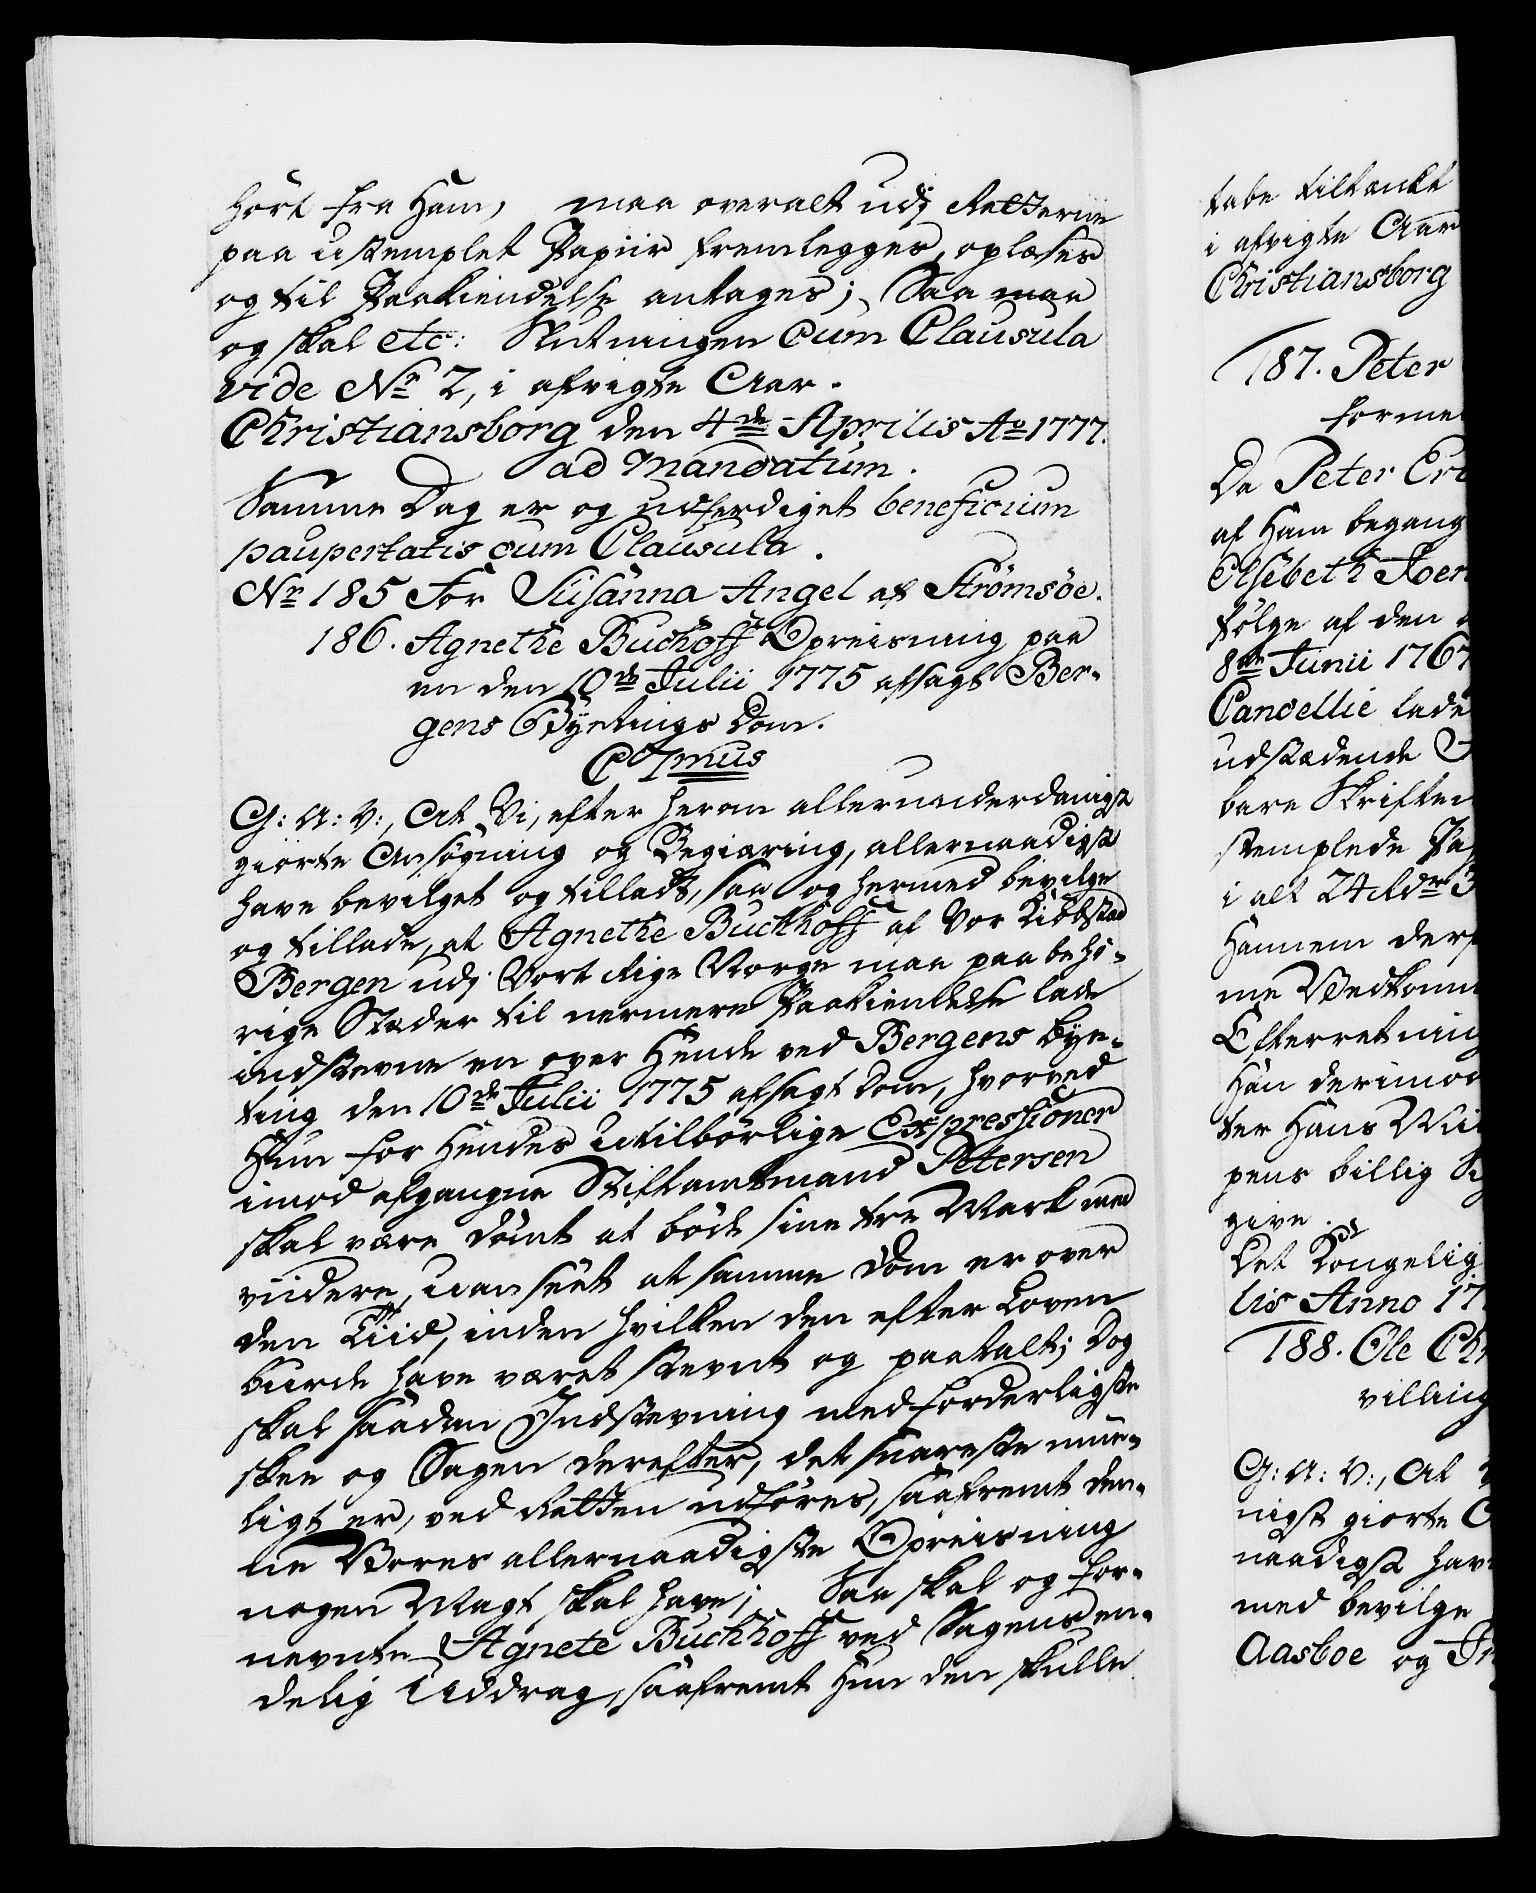 hört fra Ham, maa overalt udj Retterne
paa ustemplet Papiir fremlegges, oplæses
og til Paakiendelse antages; Saa maa
og skal etc: Slutningen Cum Clausula
vide No 2, i afvigte Aar.
Christiansborg den 4de Aprilis Ao 1777.
ad Mandatum.
Samme Dag er og udferdiget beneficium
paupertatis cum Clausula.
Nr 185 For Susanna Angel af Strømsöe.
186. Agnethe Buchhoff Opreisning paa
en den 10de Julii 1775 afsagt Ber-
gens Byetings Dom.
C 7mus
G: A: V:, At Vi, efter herom allerunderdanigst
giorte Ansøgning og Begiæring, allernaadigst
have bevilget og tilladt, saa og hermed bevilge
og tillade, at Agnethe Buckhoff af Vor Kiöbstad
Bergen udj Vort Rige Norge maa paa behö-
rige Stæder til nermere Paakiendelse lade
indstevne en over Hende ved Bergens bye-
ting den 10de Julii 1775 afsagt Dom, hvorved
Hun for Hendes Utilbörlige Expressioner
imod afgangne Stiftamtmand Petersen
skal være dömt at böde sine tre Mark med
viidere, uanseet at samme Dom er over
den Tiid, inden hvilken den efter Loven
burde have været stevnt og paatalt; Dog
skal saadan Indstevning med forderligste
skee og Sagen derefter, det snareste mue-
ligt er, ved Retten udföres, saafremt den-
ne Vores allernaadigste Opreisning
nogen Magt skal have; Saa skal og for-
nevnte Agnete Buchhoff ved Sagens en-
delig Uddrag, saafremt Hun den skulle
tabe tiltænkt
i afvigte Aar
Christiansborg
187. Peter
forme
Da Peter Er
af Ham begang
Elsebeth Joer
fölge af den
8de Junii 1767
Cancellie lade
udstædende
bare Skrifter
stemplede Pa
i alt 24 Rdr 3
Hannem der
me Vedkomm
Efterretning
Han derimod
ter Hans Vil
pens billig
give.
Det Kongelig
lis Anno 17
188. Ole Chr
villing
G: A: V:, At
nigst giorte
naadigst hav
med bevilge
Aasboe og